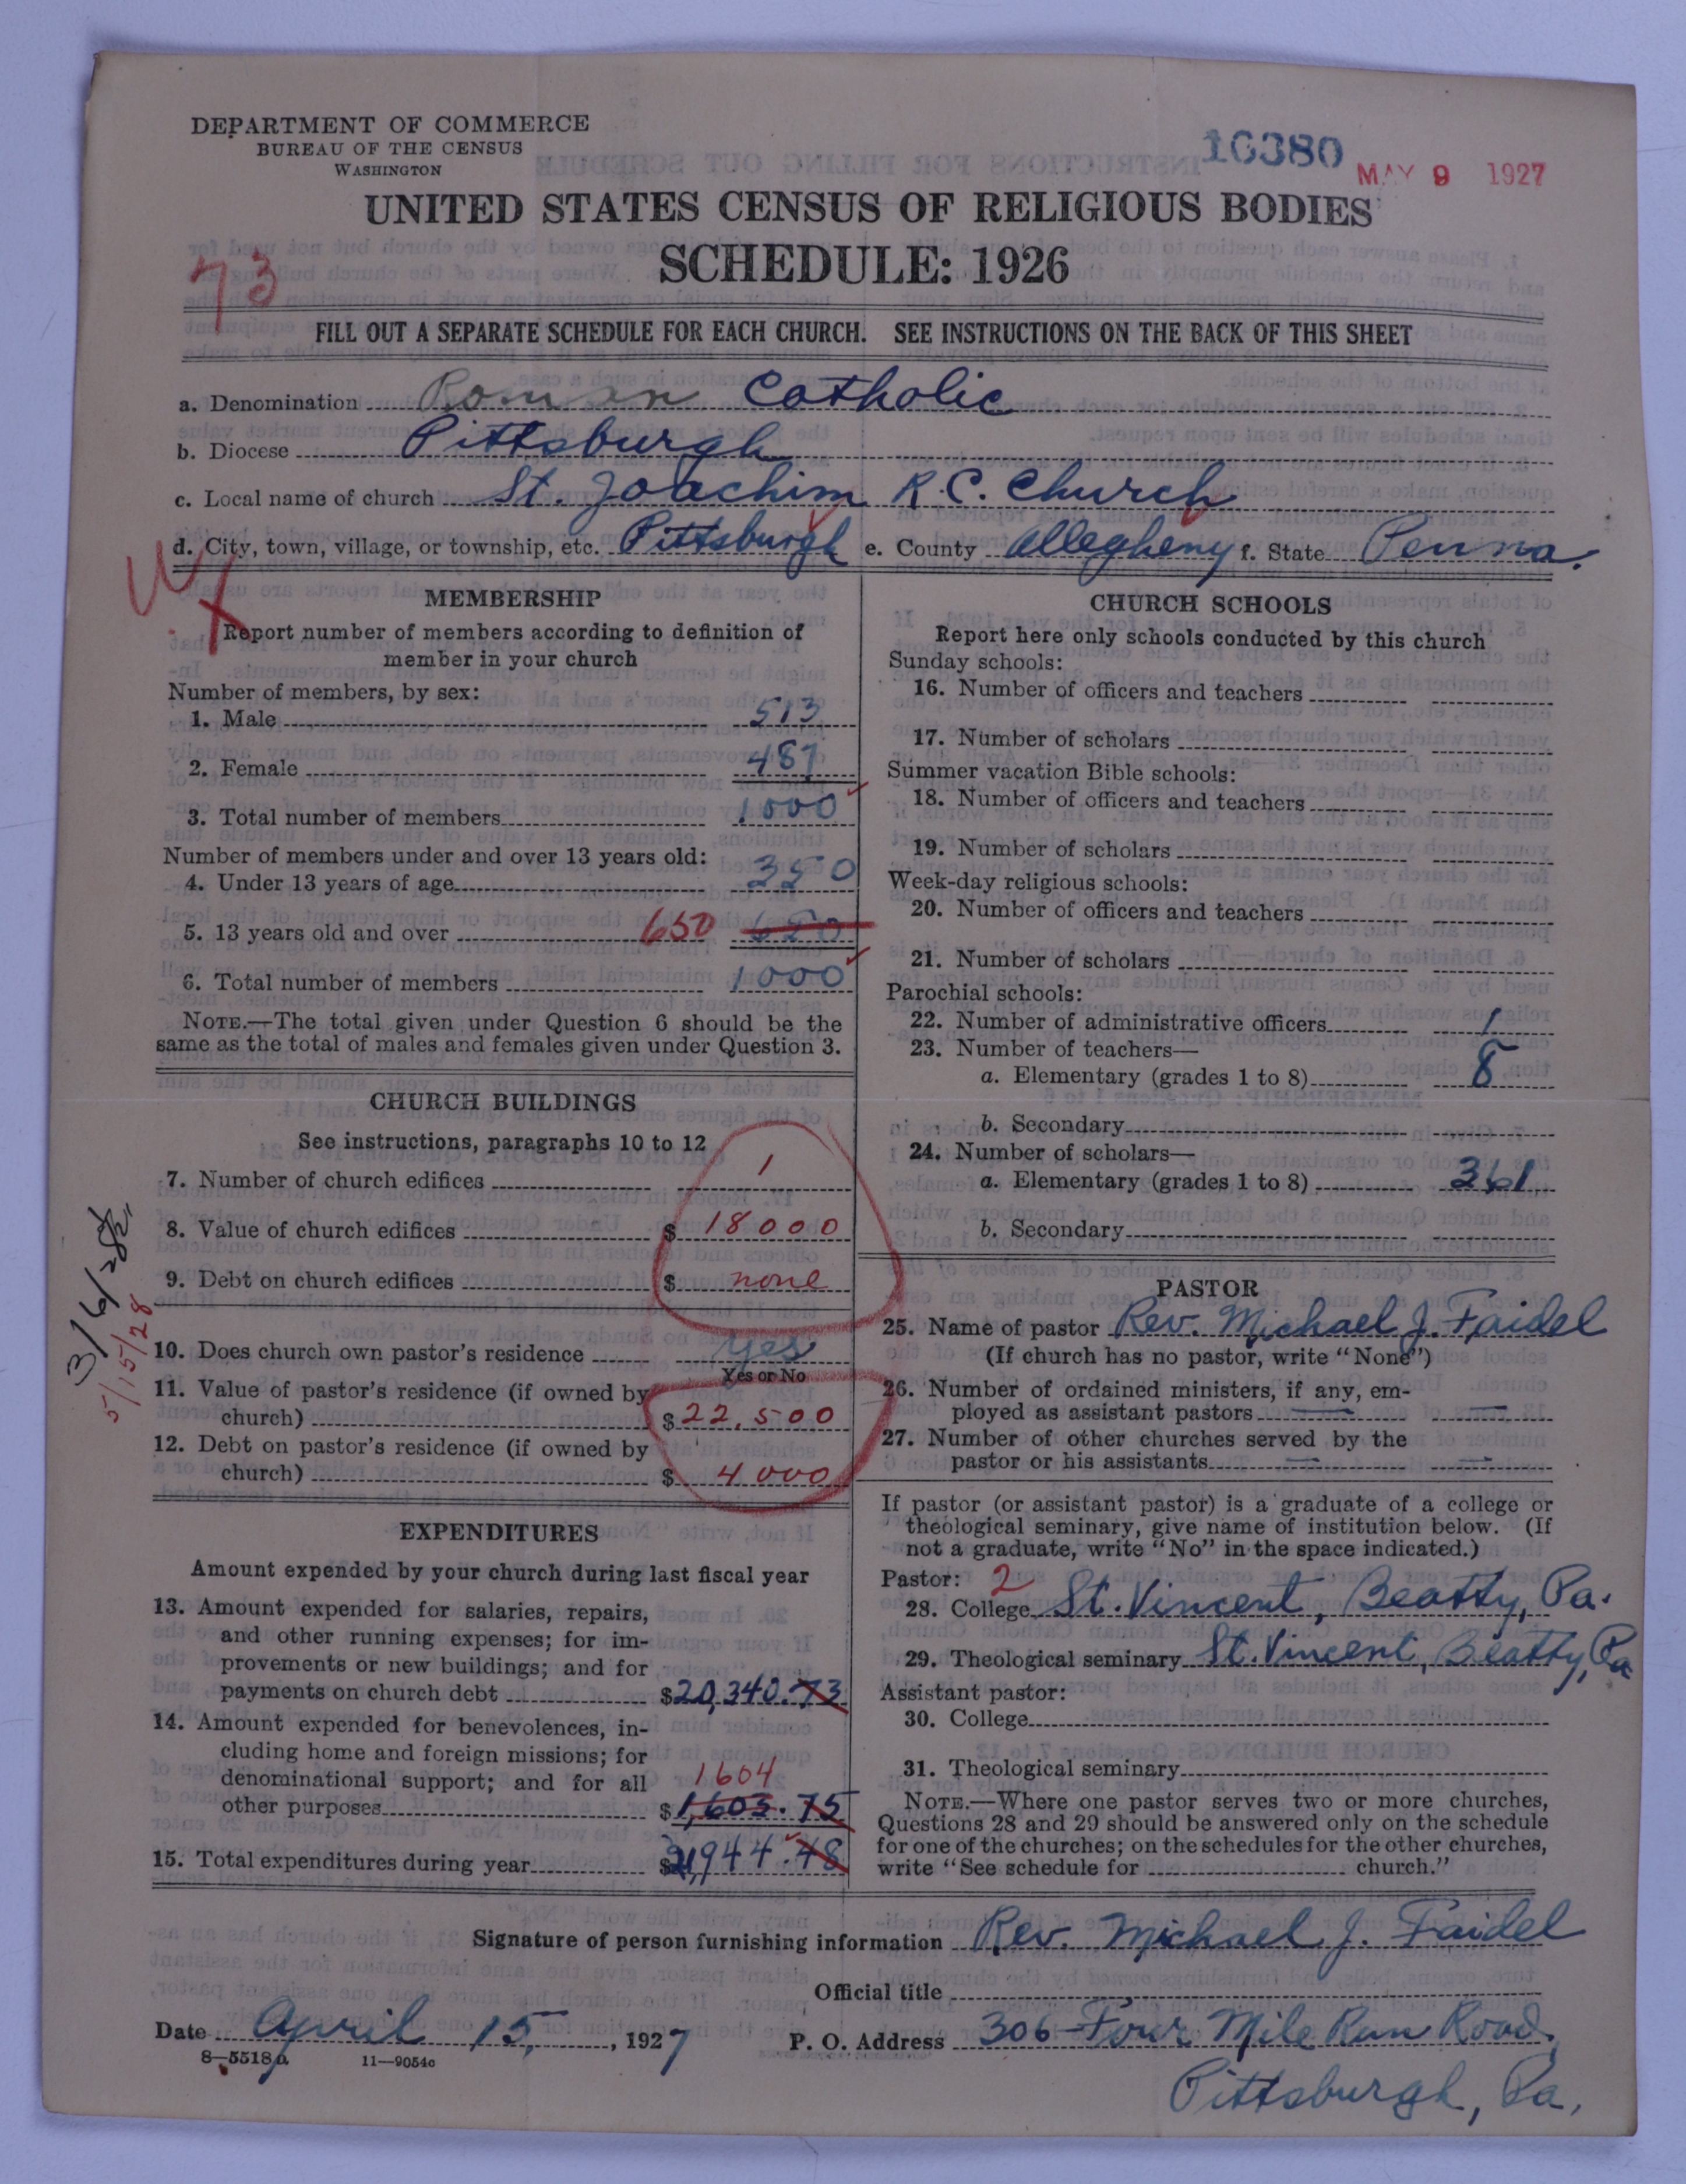 DEPARTMENT OF COMMERCE
BUREAU OF THE CENSUS
WASHINGTON
16380
MAY 9 1927
UNITED STATES CENSUS OF RELIGIOUS BODIES
SCHEDULE: 1926
73
FILL OUT A SEPARATE SCHEDULE FOR EACH CHURCH. SEE INSTRUCTIONS ON THE BACK OF THIS SHEET
a. Denomination Roman Catholic
b. Diocese Pittsburgh
c. Local name of church St. Joachim R.C. Church
d. City, town, village, or township, etc. Pittsburgh e. County Allegheny f. State Penna.
MEMBERSHIP
Report number of members according to definition of
member in your church
Number of members, by sex:
1. Male 513
2. Female 487
3. Total number of members 1000
Number of members under and over 13 years old:
4. Under 13 years of age 350
5. 13 years old and over 650 650
6. Total number of members 1000
NOTE.—The total given under Question 6 should be the
same as the total of males and females given under Question 3.
CHURCH BUILDINGS
See instructions, paragraphs 10 to 12
7. Number of church edifices 1
8. Value of church edifices $ 18000
9. Debt on church edifices $ none
10. Does church own pastor's residence yes
Yes or No
11. Value of pastor's residence (if owned by
church) $ 22,500
12. Debt on pastor's residence (if owned by
church) $ 4000
5/15/28
EXPENDITURES
Amount expended by your church during last fiscal year
13. Amount expended for salaries, repairs,
and other running expenses; for im-
provements or new buildings; and for
payments on church debt $20,340.73
14. Amount expended for benevolences, in-
cluding home and foreign missions; for
denominational support; and for all
1604
other purposes $1,603.75
15. Total expenditures during year $21,944.48
CHURCH SCHOOLS
Report here only schools conducted by this church
Sunday schools:
16. Number of officers and teachers
17. Number of scholars
Summer vacation Bible schools:
18. Number of officers and teachers
19. Number of scholars
Week-day religious schools:
20. Number of officers and teachers
21. Number of scholars
Parochial schools:
22. Number of administrative officers 1
23. Number of teachers—
a. Elementary (grades 1 to 8) 8
b. Secondary
24. Number of scholars—
a. Elementary (grades 1 to 8) 361
b. Secondary
PASTOR
25. Name of pastor Rev. Michael J. Faidel
(If church has no pastor, write "None")
26. Number of ordained ministers, if any, em-
ployed as assistant pastors — —
27. Number of other churches served by the
pastor or his assistants — —
If pastor (or assistant pastor) is a graduate of a college or
theological seminary, give name of institution below. (If
not a graduate, write "No" in the space indicated.)
Pastor: 2
28. College St. Vincent, Beatty, Pa.
29. Theological seminary St. Vincent, Beatty, Pa
Assistant pastor:
30. College
31. Theological seminary
NOTE.—Where one pastor serves two or more churches,
Questions 28 and 29 should be answered only on the schedule
for one of the churches; on the schedules for the other churches,
write "See schedule for church."
Signature of person furnishing information Rev. Michael J. Faidel
Official title
Date April 15, 1927 P. O. Address 306-Four Mile Run Road,
8—5518 11—9054c
Pittsburgh, Pa.